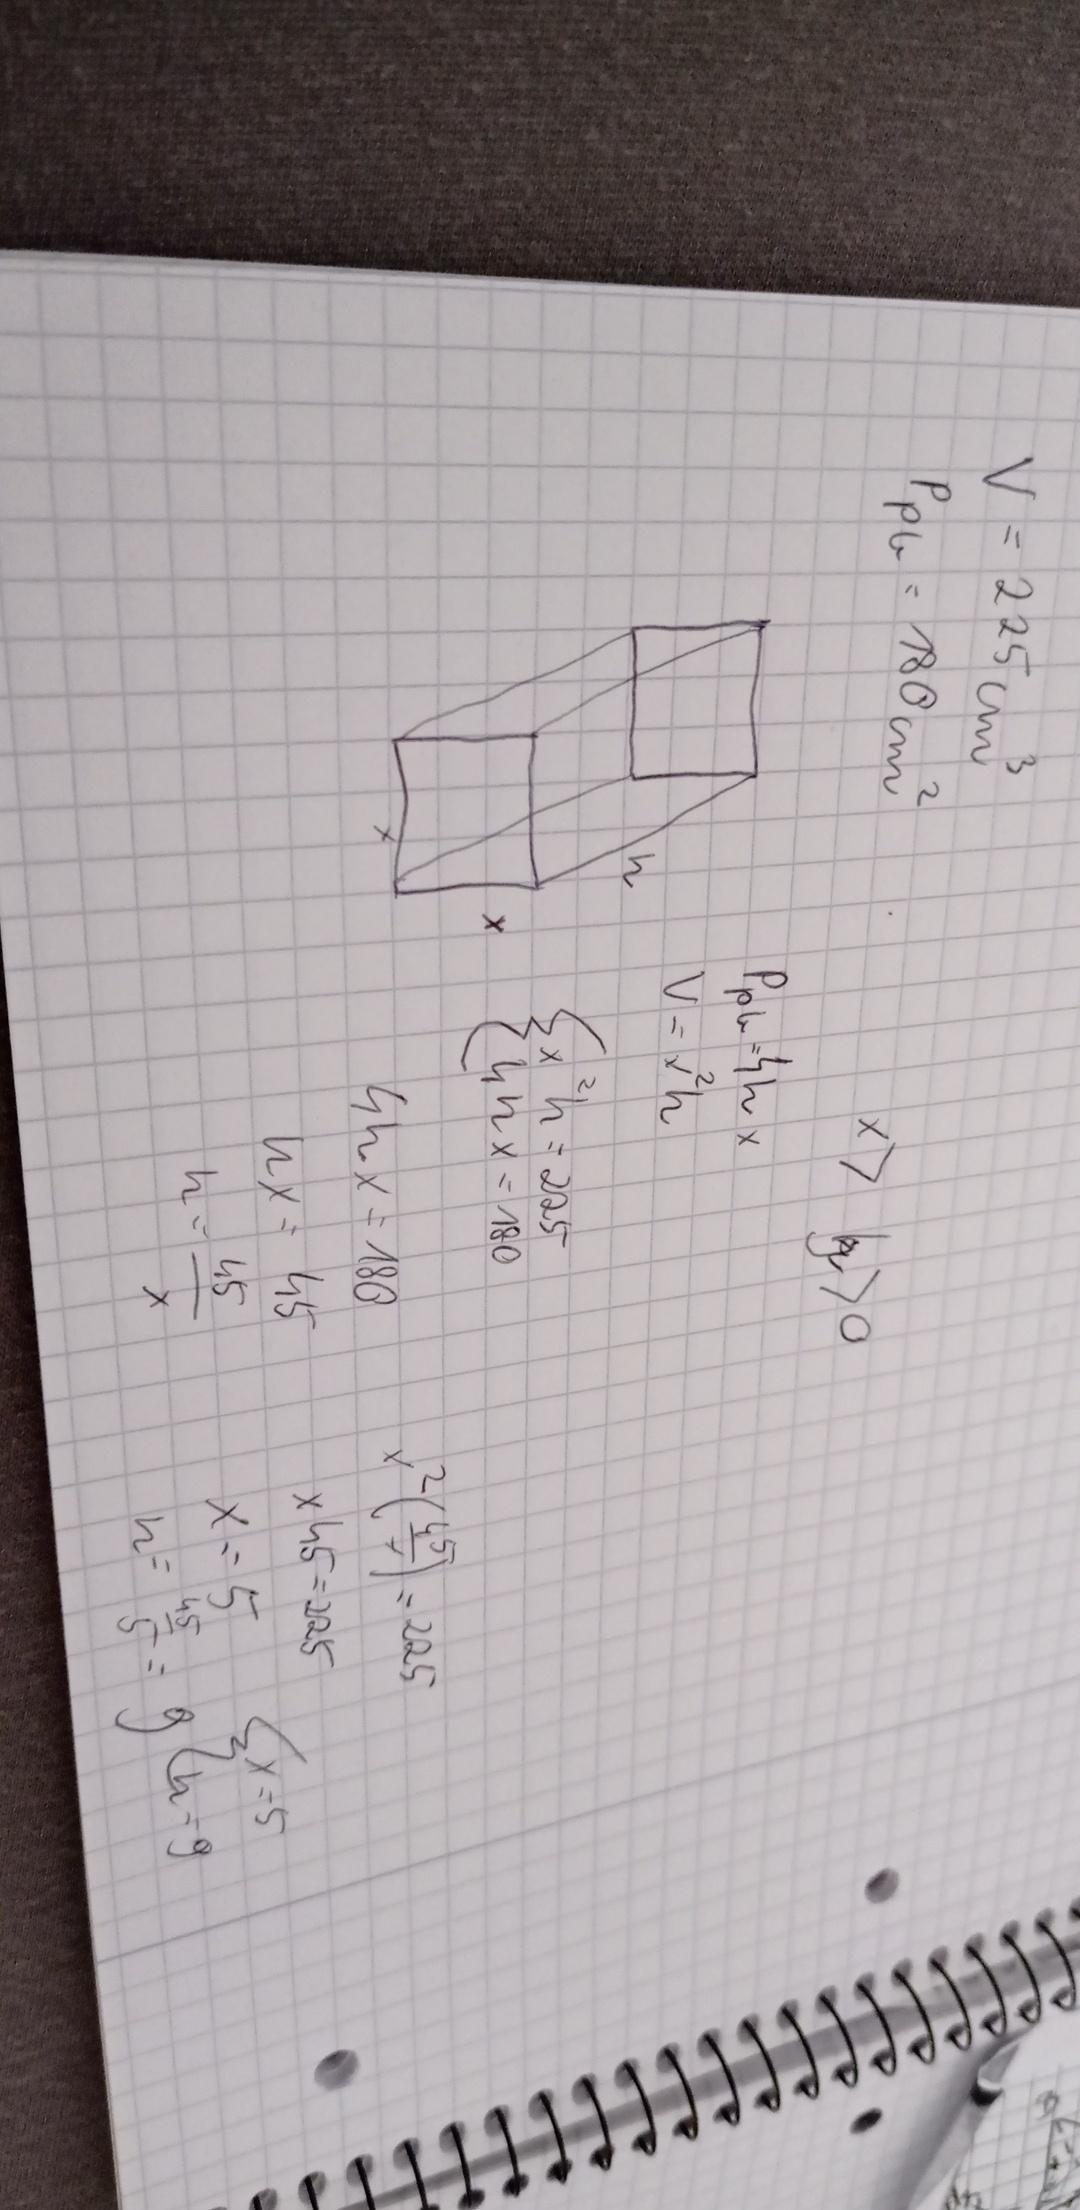 V = 225 cm³
Ppb = 180 cm²
x > h > 0
x
x
h
Ppb = 4hx
V = x²h
{ x²h = 225
{ 4hx = 180
4hx = 180
hx = 45
h = 45/x
x²(45/x) = 225
x45 = 225
x = 5
h = 45/5 = 9
{ x = 5
{ h = 9